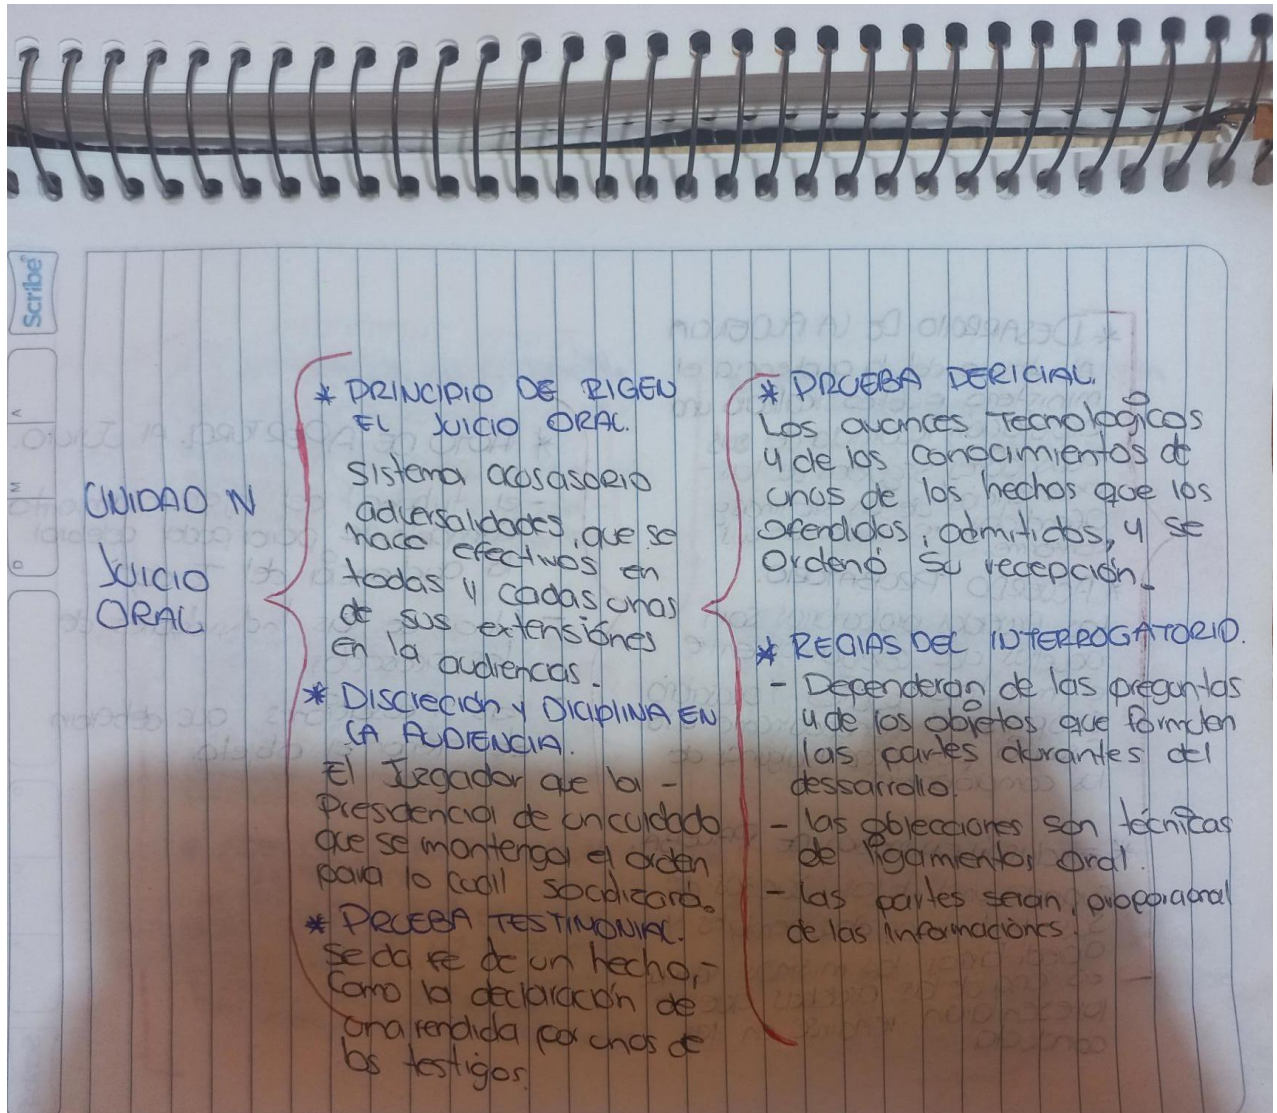 Scribe
UNIDAD IV
JUICIO
ORAL
* PRINCIPIO DE RIGEN
EL JUICIO ORAL.
Sistema acosasorio
adversalidades, que se
hace efectivos en
todas y cadas unas
de sus extensiónes
En la audiencas.
* Discreción y DICIPLINA EN
LA AUDIENCIA.
El Juzgador que la -
Presidencia de un cuidado
que se mantenga el orden
para lo cuál socalizará.
* PRUEBA TESTIMONIAL.
Se da fe de un hecho,-
Como la declaración de
una rendida por unos de
los testigos.
* PRUEBA PERICIAL.
Los avances Tecnológicos
y de los conocimientos de
unos de los hechos que los
ofendidos, admitidos, y se
Ordenó su recepción.
* REGLAS DEL INTERROGATORIO.
- Dependerán de las preguntas
y de los objetos que formulen
las partes durantes del
dessarrollo.
- las objecciones son técnicas
de ligamiento, oral.
- las partes seran, proporcional
de las informaciónes.